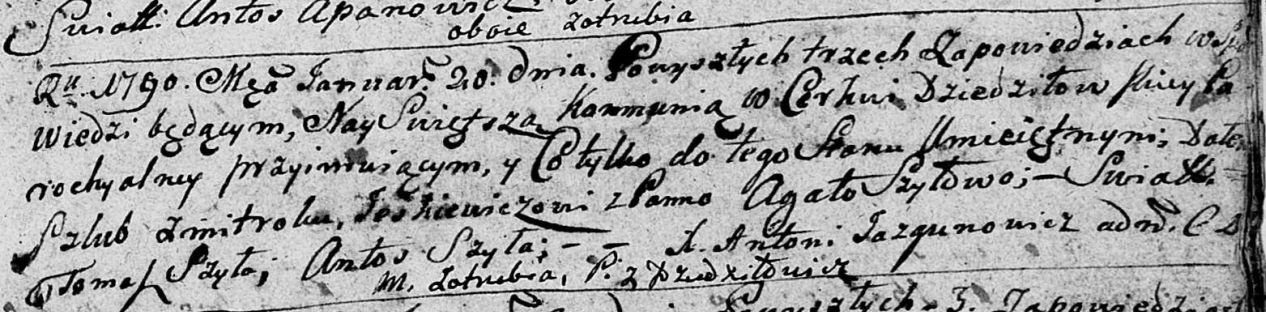 Swiatk: Antos Apanowicz,
oboie zotrubia
Ru. 1790. Mca Januar. 20. dnia. Powyszłych trzech Zapowiedziach w Spo
wiedzi będącym, Nay Swiętszą Kommunią w Cerkwi Dziedziłowskiey Pa
rochyalney przyimuiącym, y Co tylko do tego Stanu Umieiętnym; Dałe
Szlub Zmitroku, Jeskiewiczowi z Panno Agato Szyłowo; – Swiatk.
Tomasz Szyła; Antos Szyła; – – X. Antoni Jazgunowicz adm. C D
M. zotrubia, P. z Dziedziłowicz
Powyszłych 3. Zapowiedziach